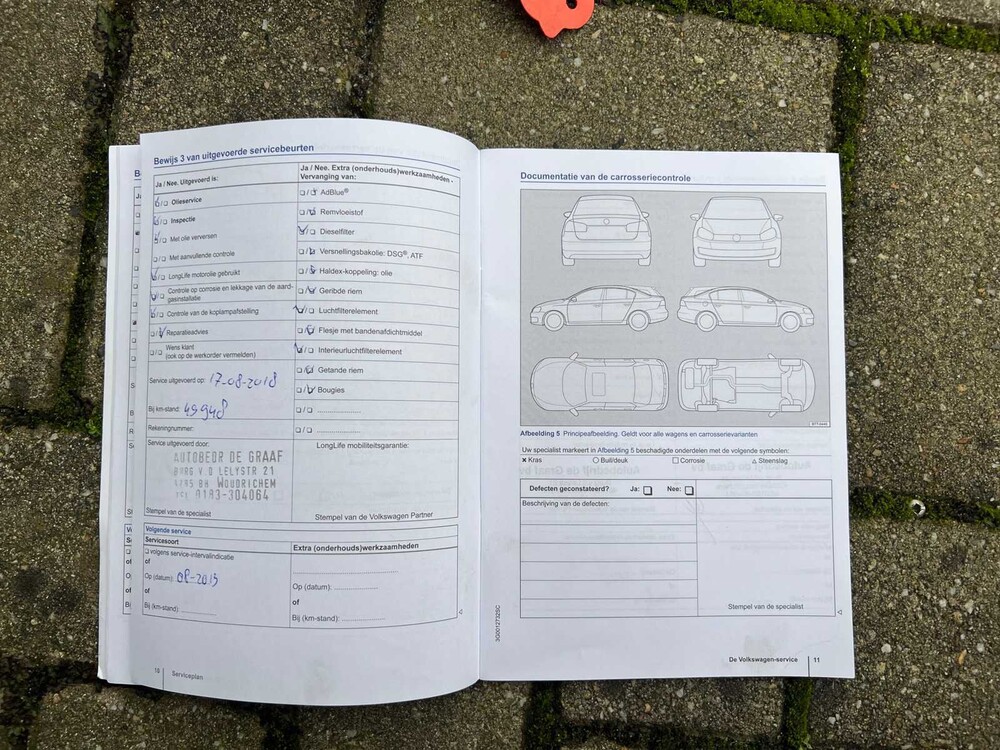 Bewijs 3 van uitgevoerde servicebeurten
Ja / Nee. Uitgevoerd is:
Olieservice
Inspectie
Met olie verversen
Met aanvullende controle
LongLife motorolie gebruikt
Controle op corrosie en lekkage van de aard-
gasinstallatie
Controle van de koplampafstelling
Reparatieadvies
Wens klant
(ook op de werkorder vermelden)
Service uitgevoerd op: 17-08-2018
Bij km-stand: 49948
Rekeningnummer:
Service uitgevoerd door:
AUTOBEDR DE GRAAF
BURG V D LELYSTR 21
4285 BH WOUDRICHEM
TEL 0183-304064
Stempel van de specialist
Ja / Nee. Extra (onderhouds)werkzaamheden -
Vervanging van:
AdBlue®
Remvloeistof
Dieselfilter
Versnellingsbakolie: DSG®, ATF
Haldex-koppeling: olie
Geribde riem
Luchtfilterelement
Flesje met bandenafdichtmiddel
Interieurluchtfilterelement
Getande riem
Bougies
LongLife mobiliteitsgarantie:
Stempel van de Volkswagen Partner
Volgende service
Servicesoort
volgens service-intervalindicatie
of
Op (datum): 08-2019
of
Bij (km-stand):
Extra (onderhouds)werkzaamheden
Op (datum):
of
Bij (km-stand):
16 Serviceplan
Documentatie van de carrosseriecontrole
Afbeelding 5 Principeafbeelding. Geldt voor alle wagens en carrosserievarianten
Uw specialist markeert in Afbeelding 5 beschadigde onderdelen met de volgende symbolen:
× Kras ○ Buil/deuk □ Corrosie △ Steenslag
Defecten geconstateerd? Ja: Nee:
Beschrijving van de defecten:
Stempel van de specialist
3G0012732SC
De Volkswagen-service 11